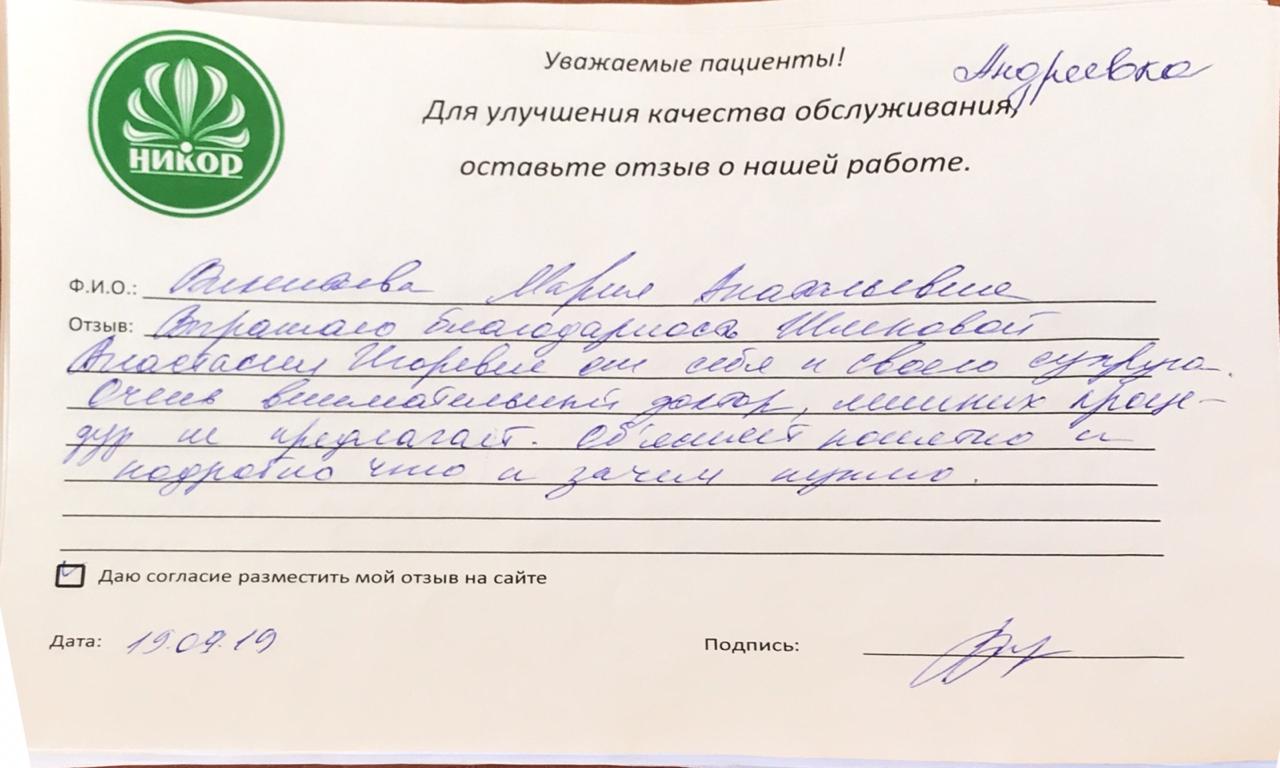 НИКОР
Андреевка
Уважаемые пациенты!
Для улучшения качества обслуживания,
оставьте отзыв о нашей работе.
Ф.И.О.: Мария Анатольевна
Отзыв: Выражаю благодарность Шленовой
Анастасии Игоревне от себя и своего супруга.
Очень внимательный доктор, лишних проце-
дур не предлагает. Объясняет понятно и
подробно что и зачем нужно.
Даю согласие разместить мой отзыв на сайте
Дата: 19.09.19
Подпись: